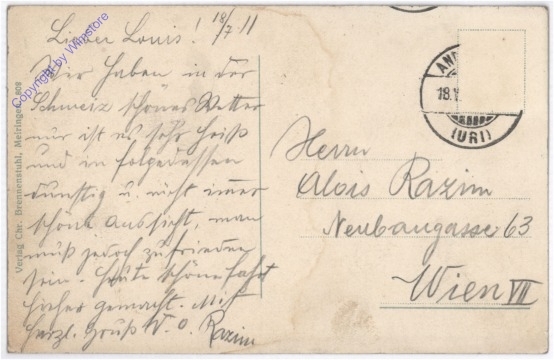 Lieber Louis! 18/7 11
Wir haben in der
Schweiz schönes Wetter
nur ist es sehr heiß
und in folgedessen
dunstig u. nicht immer
schöne Aussicht, man
muß jedoch zufrieden
sein. Heute schöne Fahrt
hieher gemacht. Mit
herzl. Gruß W. O. Razim
Herrn
Alois Razim
Neubaugasse 63
Wien VII
AND
18.V
(URI)
Verlag Chr. Brennenstuhl, Meiringen. 808
Copyright by Wimstore